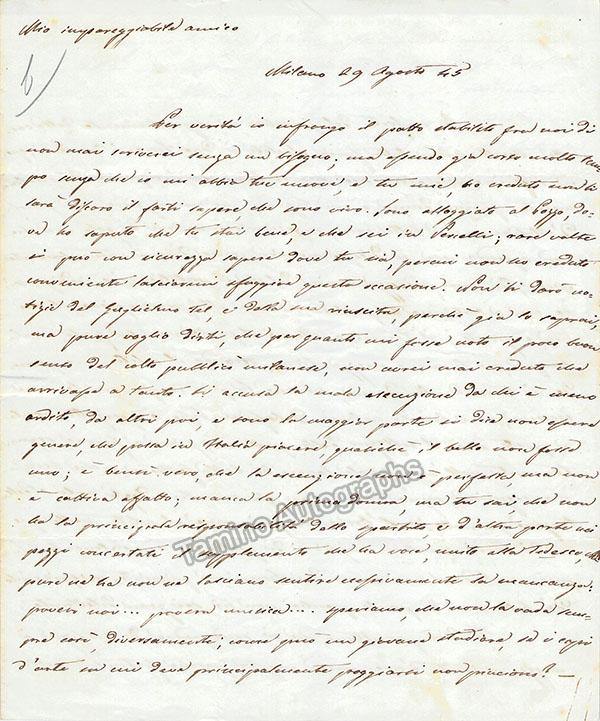 Mio impareggiabile amico
Milano 29 Agosto 45
Per verità io infrango il patto stabilito fra noi di
non mai scriverci senza un bisogno; ma essendo già corso molto tem-
po senza che io mi abbia tue nuove, e tu mie, ho creduto non ti
sarà discaro il farti sapere, che sono vivo. Sono alloggiato al Pozzo, do-
ve ho saputo che tu stai bene, e che sei in Vercelli; rare volte
si può con sicurezza sapere dove tu sia, perciò non ho creduto
conveniente lasciarmi sfuggire questa occasione. Non ti darò no-
tizie del Guglielmo Tel, e della sua riuscita, perchè già le saprai,
ma pure voglio dirti, che per quanto mi fosse noto il poco buon
senso del colto pubblico milanese, non avrei mai creduto che
arrivasse a tanto. Si accusa la mala esecuzione da chi è meno
ardito, da altri poi, e sono la maggior parte si dice non essere
genere, che possa in Italia piacere, quasichè il bello non fosse
uno; è bensì vero, che la esecuzione non è perfetta, ma non
è cattiva affatto; manca la prima donna, ma tu sai, che non
ha la principale responsabilità dello spartito, e d'altra parte nei
pezzi concertati il supplemento che ha voce, unito alla Tedesco, che
pure ne ha non ne lasciano sentire eccessivamente la mancanza:
poveri noi... povera musica.... speriamo, che non la vada sem-
pre così, diversamente; come può un giovane studiare, se i capi
d'arte su cui deve principalmente poggiarsi non piacciono? —
Tamino Autographs